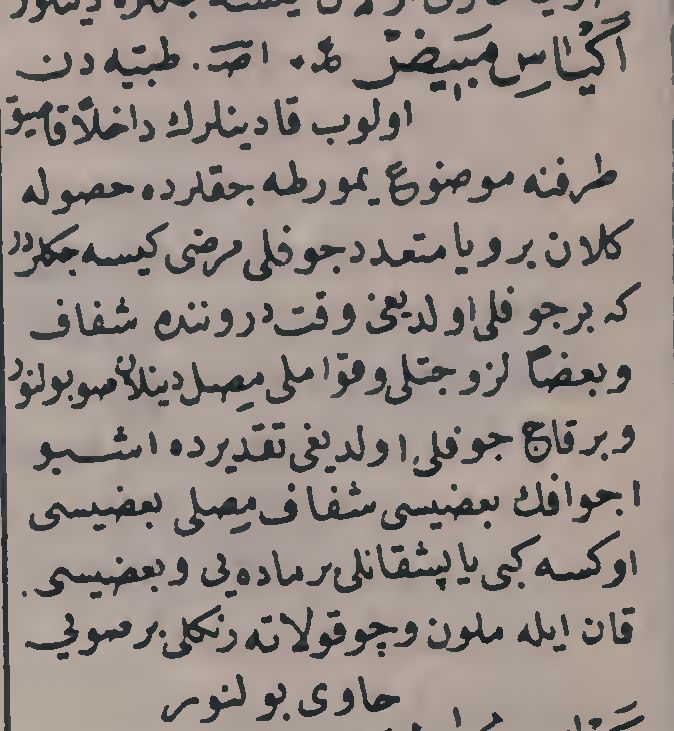 اَكْيَاسِ مَبِيضْ اص. طبیه دن
اولوب قادینلرك داخلاً قاصیق
طرفنه موضوع یمورطه جقلرده حصوله
كلان بر ویا متعدد جوفلی مرضی كیسه جكلردر
كه برجوفلی اولدیغی وقت دروننده شفاف
وبعضاً لزوجتلی وقواملی مِصل دینلان صو بولنور
وبر قاچ جوفلی اولدیغی تقدیرده اشبو
اجوافك بعضیسی شفاف مِصلی بعضیسی
اوكسه كبی یاپشقانلی بر ماده یی وبعضیسی
قان ایله ملون وچوقولاته رنكلی بر صویی
حاوی بولنور